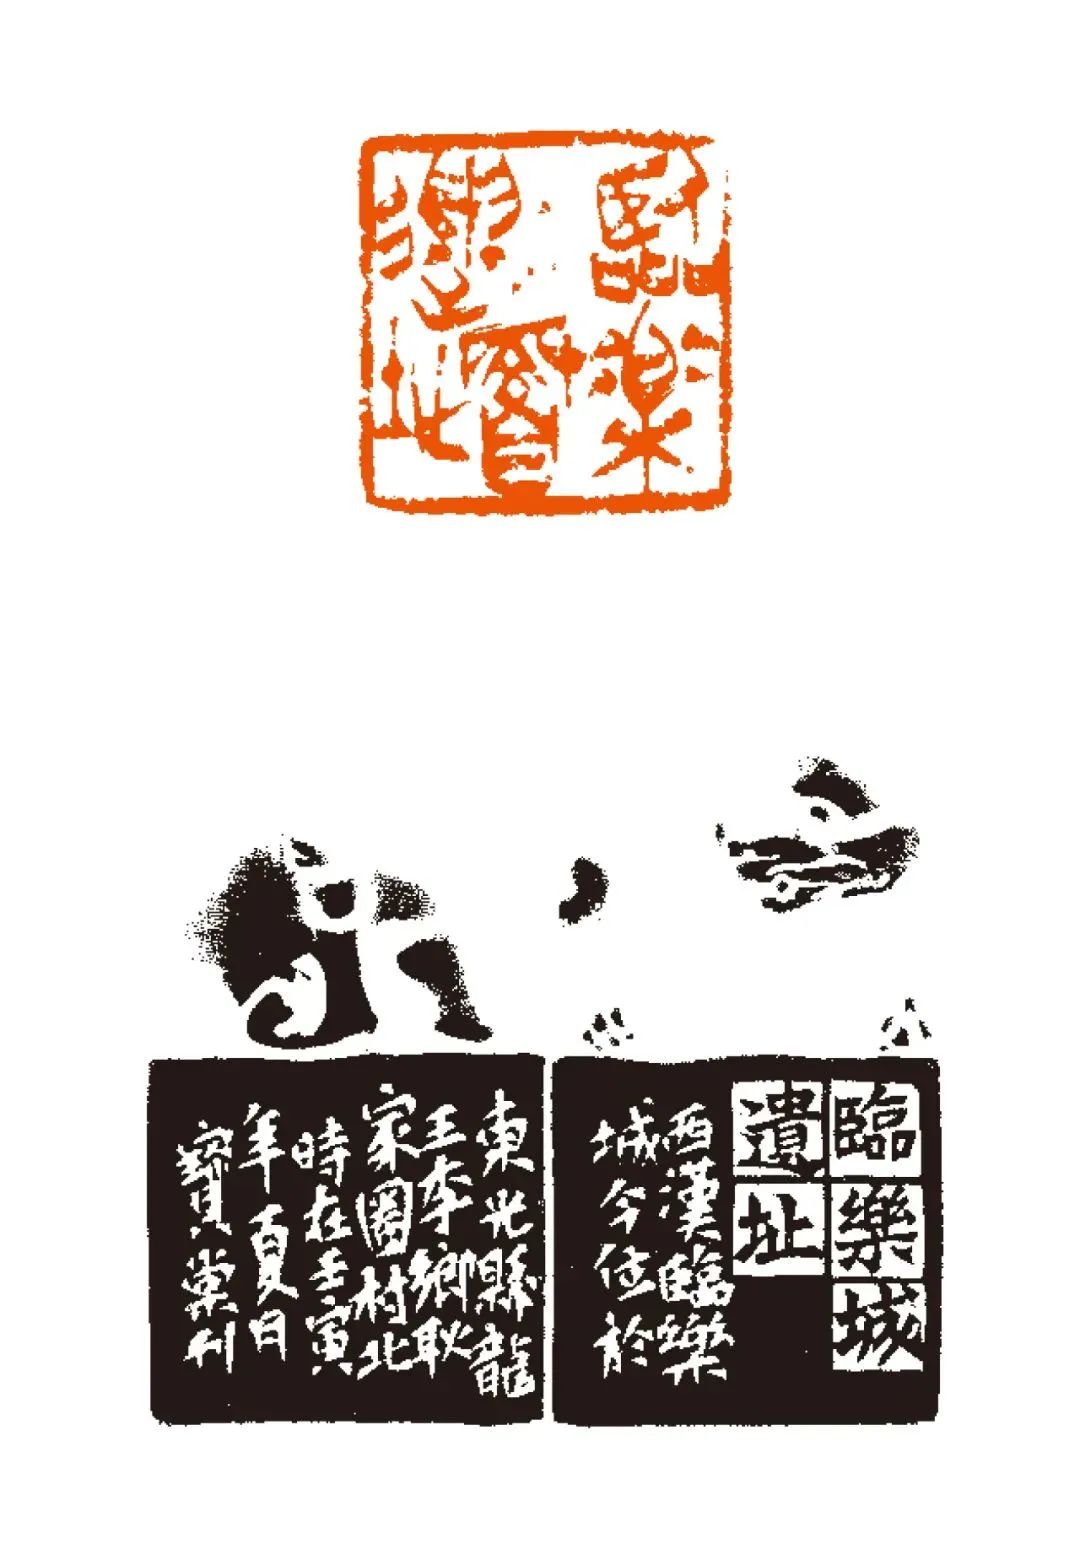 臨樂
城遺址
臨樂城
遺址
西漢臨樂
城今位於
東光縣龍
王李鄉耿
家圈村北
時在壬寅
年夏日
寶東刊